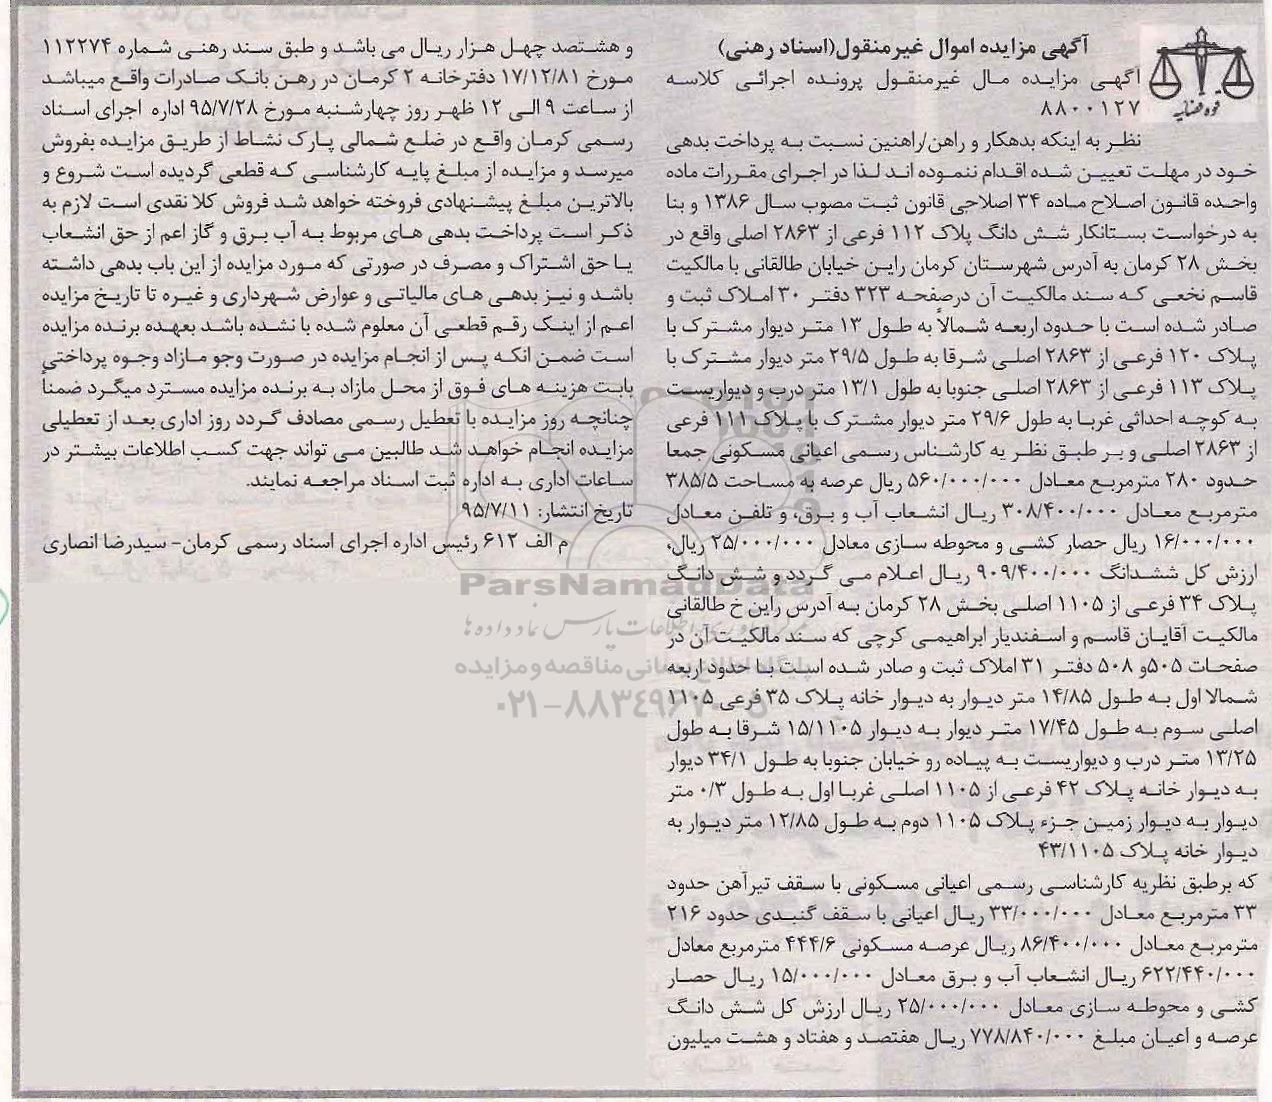 آگهی مزایده اموال غیرمنقول(اسناد رهنی)
آگهی مزایده مال غیرمنقول پرونده اجرائی کلاسه
۸۸۰۰۱۲۷
قوه قضائیه
نظر به اینکه بدهکار و راهن/راهنین نسبت به پرداخت بدهی
خود در مهلت تعیین شده اقدام ننموده اند لذا در اجرای مقررات ماده
واحده قانون اصلاح ماده ۳۴ اصلاحی قانون ثبت مصوب سال ۱۳۸۶ و بنا
به درخواست بستانکار شش دانگ پلاک ۱۱۲ فرعی از ۲۸۶۳ اصلی واقع در
بخش ۲۸ کرمان به آدرس شهرستان کرمان راین خیابان طالقانی با مالکیت
قاسم نخعی که سند مالکیت آن درصفحه ۳۲۳ دفتر ۳۰ املاک ثبت و
صادر شده است با حدود اربعه شمالاً به طول ۱۳ متر دیوار مشترک با
پلاک ۱۲۰ فرعی از ۲۸۶۳ اصلی شرقا به طول ۲۹/۵ متر دیوار مشترک با
پلاک ۱۱۳ فرعی از ۲۸۶۳ اصلی جنوبا به طول ۱۳/۱ متر درب و دیواریست
به کوچه احداثی غربا به طول ۲۹/۶ متر دیوار مشترک با پلاک ۱۱۱ فرعی
از ۲۸۶۳ اصلی و بر طبق نظر یه کارشناس رسمی اعیانی مسکونی جمعا
حدود ۲۸۰ مترمربع معادل ۵۶۰/۰۰۰/۰۰۰ ریال عرصه به مساحت ۳۸۵/۵
مترمربع معادل ۳۰۸/۴۰۰/۰۰۰ ریال انشعاب آب و برق، و تلفن معادل
۱۶/۰۰۰/۰۰۰ ریال حصار کشی و محوطه سازی معادل ۲۵/۰۰۰/۰۰۰ ریال،
ارزش کل ششدانگ ۹۰۹/۴۰۰/۰۰۰ ریال اعلام می گردد و شش دانگ
پلاک ۳۴ فرعی از ۱۱۰۵ اصلی بخش ۲۸ کرمان به آدرس راین خ طالقانی
مالکیت آقایان قاسم و اسفندیار ابراهیمی کرچی که سند مالکیت آن در
صفحات ۵۰۵و ۵۰۸ دفتر ۳۱ املاک ثبت و صادر شده است با حدود اربعه
شمالا اول به طول ۱۴/۸۵ متر دیوار به دیوار خانه پلاک ۳۵ فرعی ۱۱۰۵
اصلی سوم به طول ۱۷/۴۵ متر دیوار به دیوار ۱۵/۱۱۰۵ شرقا به طول
۱۳/۲۵ متر درب و دیواریست به پیاده رو خیابان جنوبا به طول ۳۴/۱ دیوار
به دیوار خانه پلاک ۴۲ فرعی از ۱۱۰۵ اصلی غربا اول به طول ۰/۳ متر
دیوار به دیوار زمین جزء پلاک ۱۱۰۵ دوم به طول ۱۲/۸۵ متر دیوار به
دیوار خانه پلاک ۴۳/۱۱۰۵
که برطبق نظریه کارشناسی رسمی اعیانی مسکونی با سقف تیرآهن حدود
۳۳ مترمربع معادل ۳۳/۰۰۰/۰۰۰ ریال اعیانی با سقف گنبدی حدود ۲۱۶
مترمربع معادل ۸۶/۴۰۰/۰۰۰ ریال عرصه مسکونی ۴۴۴/۶ مترمربع معادل
۶۲۲/۴۴۰/۰۰۰ ریال انشعاب آب و برق معادل ۱۵/۰۰۰/۰۰۰ ریال حصار
کشی و محوطه سازی معادل ۲۵/۰۰۰/۰۰۰ ریال ارزش کل شش دانگ
عرصه و اعیان مبلغ ۷۷۸/۸۴۰/۰۰۰ ریال هفتصد و هفتاد و هشت میلیون
و هشتصد چهل هزار ریال می باشد و طبق سند رهنی شماره ۱۱۲۲۷۴
مورخ ۱۷/۱۲/۸۱ دفترخانه ۲ کرمان در رهن بانک صادرات واقع میباشد
از ساعت ۹ الی ۱۲ ظهر روز چهارشنبه مورخ ۹۵/۷/۲۸ اداره اجرای اسناد
رسمی کرمان واقع در ضلع شمالی پارک نشاط از طریق مزایده بفروش
میرسد و مزایده از مبلغ پایه کارشناسی که قطعی گردیده است شروع و
بالاترین مبلغ پیشنهادی فروخته خواهد شد فروش کلا نقدی است لازم به
ذکر است پرداخت بدهی های مربوط به آب برق و گاز اعم از حق انشعاب
یا حق اشتراک و مصرف در صورتی که مورد مزایده از این باب بدهی داشته
باشد و نیز بدهی های مالیاتی و عوارض شهرداری و غیره تا تاریخ مزایده
اعم از اینک رقم قطعی آن معلوم شده با نشده باشد بعهده برنده مزایده
است ضمن انکه پس از انجام مزایده در صورت وجو مازاد وجوه پرداختی
بابت هزینه های فوق از محل مازاد به برنده مزایده مسترد میگرد ضمناً
چنانچه روز مزایده با تعطیل رسمی مصادف گردد روز اداری بعد از تعطیلی
مزایده انجام خواهد شد طالبین می تواند جهت کسب اطلاعات بیشتر در
ساعات اداری به اداره ثبت اسناد مراجعه نمایند.
تاریخ انتشار: ۹۵/۷/۱۱
م الف ۶۱۲ رئیس اداره اجرای اسناد رسمی کرمان- سیدرضا انصاری
ParsNamadData
پایگاه اطلاع رسانی مناقصه و مزایده